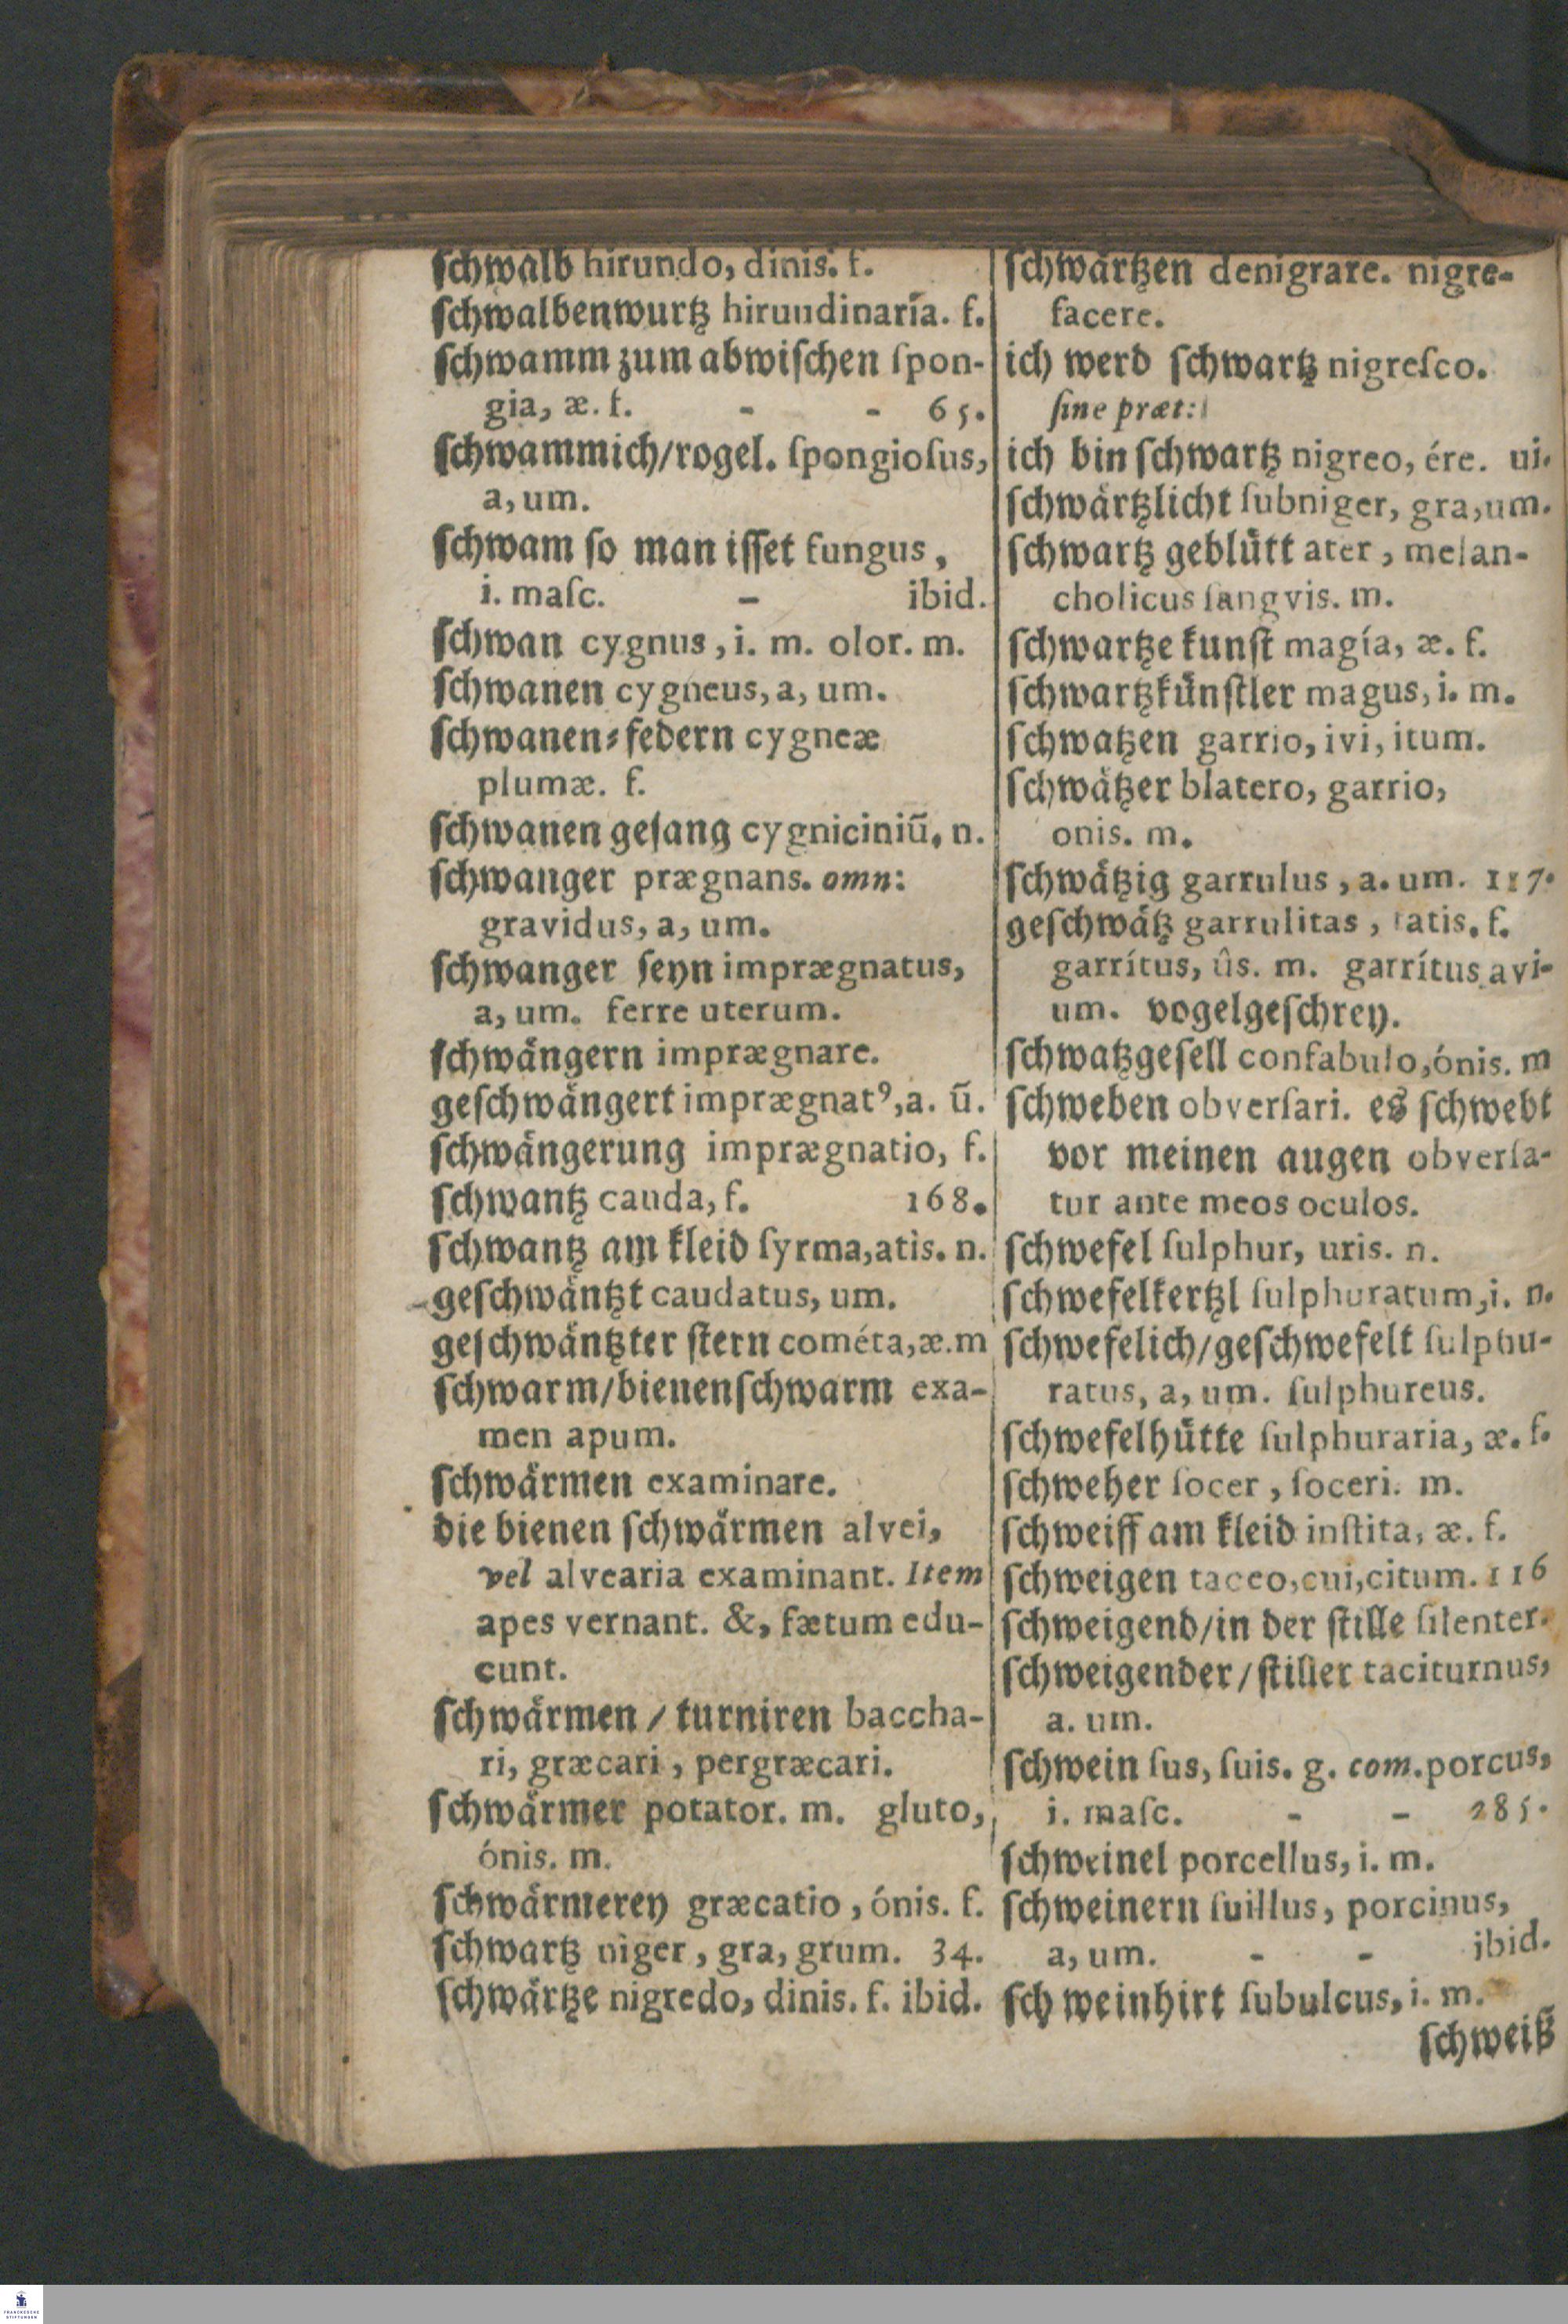 ſchwalb hirundo, dinis. f.
ſchwalbenwurtz hirundinaría. f.
ſchwamm zum abwiſchen ſpon-
gia, æ. f. - - 65.
ſchwammich/rogel. ſpongioſus,
a, um.
ſchwam ſo man iſſet fungus,
i. maſc. - ibid.
ſchwan cygnus, i. m. olor. m.
ſchwanen cygneus, a, um.
ſchwanen-federn cygneæ
plumæ. f.
ſchwanen geſang cygniciniũ, n.
ſchwanger prægnans. omn:
gravidus, a, um.
ſchwanger ſeyn imprægnatus,
a, um. ferre uterum.
ſchwängern imprægnare.
geſchwängert imprægnatꝰ, a. ũ.
ſchwängerung imprægnatio, f.
ſchwantz cauda, f. 168.
ſchwantz am kleid ſyrma, atis. n.
geſchwäntzt caudatus, um.
geſchwäntzter ſtern cométa, æ. m
ſchwarm/bienenſchwarm exa-
men apum.
ſchwärmen examinare.
die bienen ſchwärmen alvei,
vel alvearia examinant. Item
apes vernant. &, fætum edu-
cunt.
ſchwärmen / turniren baccha-
ri, græcari, pergræcari.
ſchwärmer potator. m. gluto,
ónis. m.
ſchwärmerey græcatio, ónis. f.
ſchwartz niger, gra, grum. 34.
ſchwärtze nigredo, dinis. f. ibid.
ſchwärtzen denigrare. nigre-
facere.
ich werd ſchwartz nigreſco.
ſine præt:
ich bin ſchwartz nigreo, ére. ui.
ſchwärtzlicht ſubniger, gra, um.
ſchwartz geblütt ater, melan-
cholicus ſangvis. m.
ſchwartze kunſt magía, æ. f.
ſchwartzkünſtler magus, i. m.
ſchwatzen garrio, ivi, itum.
ſchwätzer blatero, garrio,
onis. m.
ſchwätzig garrulus, a. um. 117.
geſchwätz garrulitas, tatis. f.
garrítus, ûs. m. garrítus avi-
um. vogelgeſchrey.
ſchwatzgeſell confabulo, ónis. m
ſchweben obverſari. es ſchwebt
vor meinen augen obverſa-
tur ante meos oculos.
ſchwefel ſulphur, uris. n.
ſchwefelkertzl ſulphuratum, i. n.
ſchwefelich/geſchwefelt ſulphu-
ratus, a, um. ſulphureus.
ſchwefelhütte ſulphuraria, æ. f.
ſchweher ſocer, ſoceri. m.
ſchweiff am kleid inſtita, æ. f.
ſchweigen taceo, cui, citum. 116
ſchweigend/in der ſtille ſilenter.
ſchweigender/ſtiller taciturnus,
a. um.
ſchwein ſus, ſuis. g. com. porcus,
i. maſc. - - 285.
ſchweinel porcellus, i. m.
ſchweinern ſuillus, porcinus,
a, um. - - ibid.
ſchweinhirt ſubulcus, i. m.
ſchweiß
FRANCKESCHE
STIFTUNGEN